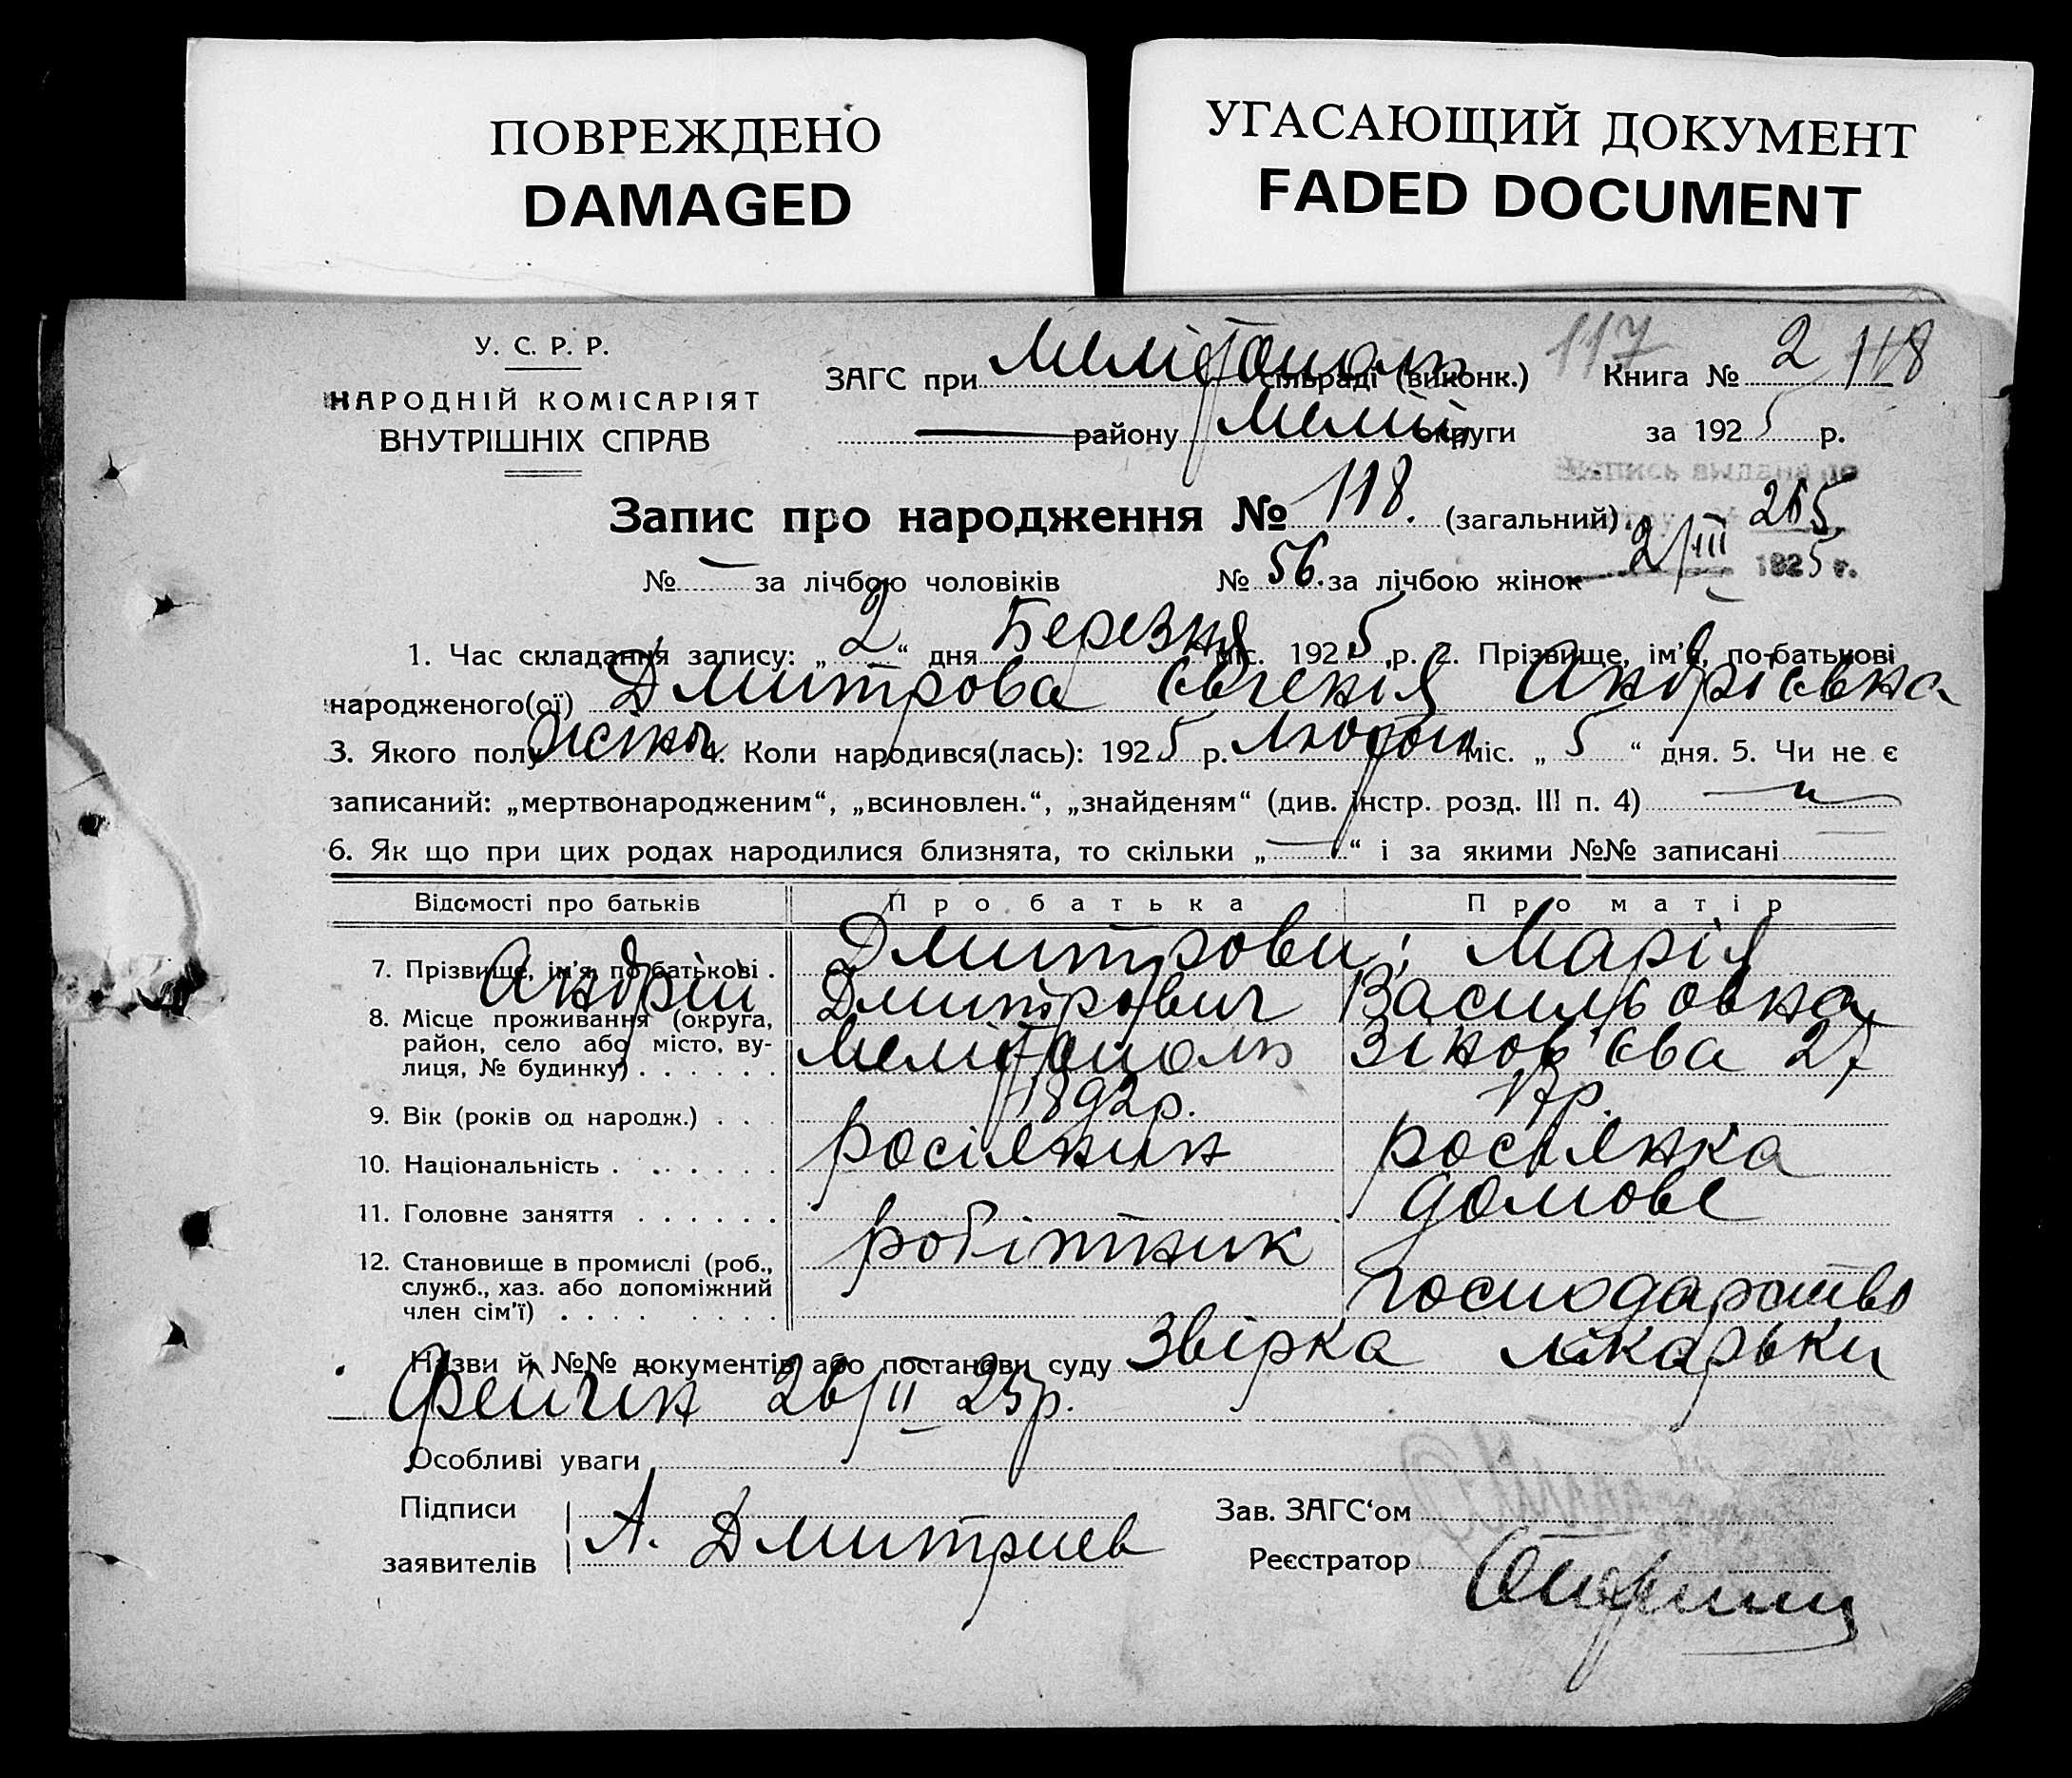 ПОВРЕЖДЕНО
DAMAGED
УГАСАЮЩИЙ ДОКУМЕНТ
FADED DOCUMENT
У. С. Р. Р.
НАРОДНІЙ КОМІСАРІЯТ
ВНУТРІШНІХ СПРАВ
ЗАГС при Мелітополь сільраді (виконк.)
117 Книга № 2 118
району Меліт. округи за 1925 р.
Запис про народження № 118. (загальний).
265
2/III 1925 г.
№ — за лічбою чоловіків № 56. за лічбою жінок
1. Час складання запису: „2“ дня Березня міс. 1925 р. 2. Прізвище, ім'я, по-батькові
народженого(ої) Дмитрова Євгенія Андрієвна
3. Якого полу жіноч. 4. Коли народився(лась): 1925 р. Лютого міс. „5“ дня. 5. Чи не є
записаний: „мертвонародженим“, „всиновлен.“, „знайденям“ (див. інстр. розд. III п. 4) — н —
6. Як що при цих родах народилися близнята, то скільки „—“ і за якими №№ записані
Відомості про батьків Про батька Про матір
7. Прізвище, ім'я, по-батькові . Дмитрови: Марія
Андрій Дмитрович Васильовна
8. Місце проживання (округа, район, село або місто, вулиця, № будинку) . . . . . . Мелітополь Зінов'єва 27
9. Вік (років од народж.) . . . 1892р. 17р.
10. Національність . . . . . . . росіянин росіянка
11. Головне заняття . . . . . . робітник домове
12. Становище в промислі (роб., служб., хаз. або допоміжний член сім'ї) . . . . . . . . господарство
Назви й №№ документів або постанови суду Звірка лікарьки
Фейгін 26/II 25р.
Особливі уваги
Підписи
заявителів А. Дмитриев
Зав. ЗАГС'ом
Реєстратор